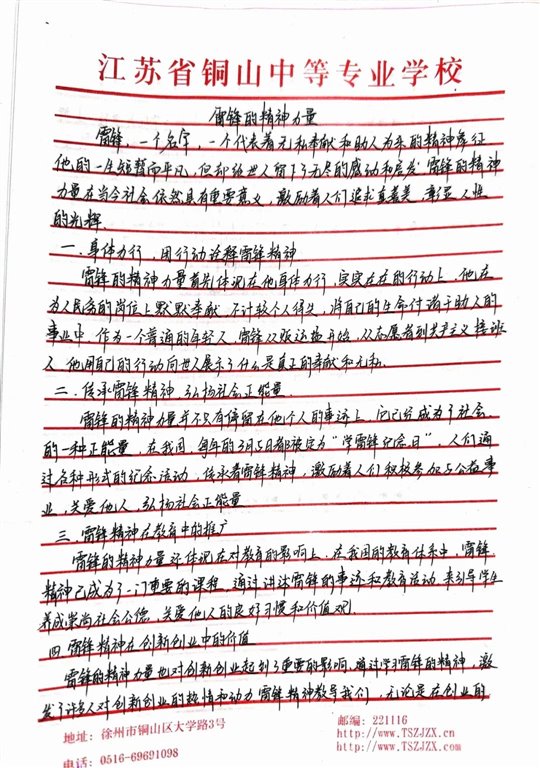 江苏省铜山中等专业学校
雷锋的精神力量
雷锋，一个名字，一个代表着无私奉献和助人为乐的精神象征
他的一生短暂而平凡，但却给世人留下了无尽的感动和启发 雷锋的精神
力量在当今社会依然具有重要意义，激励着人们追求真善美，彰显人性
的光辉.
一.身体力行，用行动诠释雷锋精神
雷锋的精神力量首先体现在他身体力行，实实在在的行动上，他在
为人民务的岗位上默默奉献 不计较个人得失，将自己的生命付诸于助人的
事业中.作为一个普通的年轻人，雷锋从做运扬开始，从志愿者到共产主义接班
人 他用自己的行动向世人展示了什么是真正的奉献和无私.
二.传承雷锋精神，弘扬社会正能量
雷锋的精神力量并不只有停留在他个人的事迹上，它已经成为了社会
的一种正能量，在我国，每年的3月5日都被定为“学雷锋纪念日”，人们通
过各种形式的纪念活动，传承着雷锋精神，激励着人们积极参加与公益事
业，关爱他人，弘扬社会正能量
三.雷锋精神在教育中的推广
雷锋的精神力量还体现在对教育的影响上，在我国的教育体系中，雷锋
精神已成为了一门重要的课程，通过讲述雷锋的事迹和教育活动，来引导学生
养成崇尚社会公德，关爱他人的良好习惯和价值观.
四 雷锋精神在创新创业中的价值
雷锋的精神力量也对创新创业起到了重要的影响，通过学习雷锋的精神，激
发了许多人对创新创业的热情和动力 雷锋精神教导我们，无论是在创业的
地址: 徐州市铜山区大学路3号
邮编: 221116
http://www.TSZJZX.cn
电话: 0516-69691098
http://www.TSZJZX.com